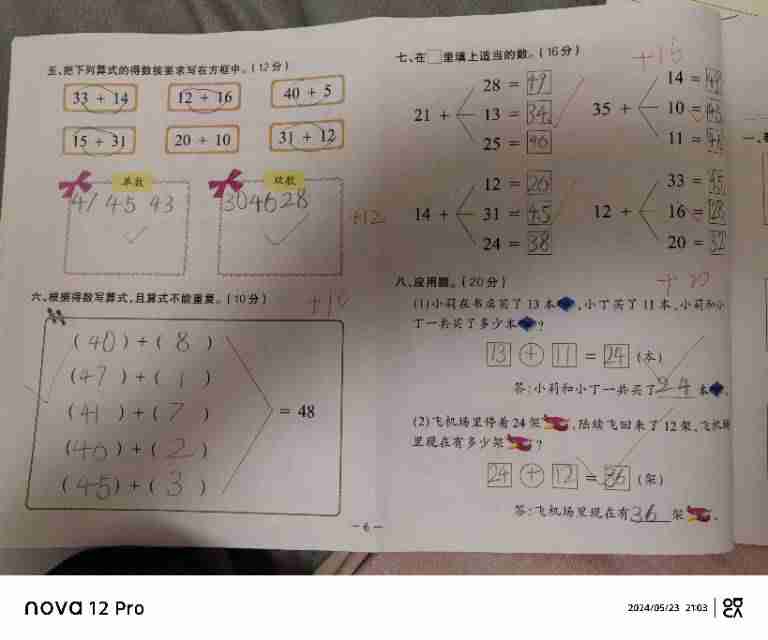 五、把下列算式的得数按要求写在方框中。(12分)
33 + 14 12 + 16 40 + 5
15 + 31 20 + 10 31 + 12
单数 双数
47 45 43 30 46 28
+12
六、根据得数写算式,且算式不能重复。(10分)
+10
(40)+(8)
(47)+(1)
(41)+(7)
(46)+(2)
(45)+(3)
= 48
－6－
七、在□里填上适当的数。(16分)
+16
21 +
28 = 49
13 = 34
25 = 46
35 +
14 = 49
10 = 45
11 = 46
14 +
12 = 26
31 = 45
24 = 38
12 +
33 = 45
16 = 28
20 = 32
八、应用题。(20分)
+20
(1)小莉在书店买了 13 本,小丁买了 11 本,小莉和小
丁一共买了多少本?
13 + 11 = 24 (本)
答:小莉和小丁一共买了24本
(2)飞机场里停着 24 架,陆续飞回来了 12 架,飞机场
里现在有多少架?
24 + 12 = 36 (架)
答:飞机场里现在有36架。
nova 12 Pro
2024/05/23 21:03